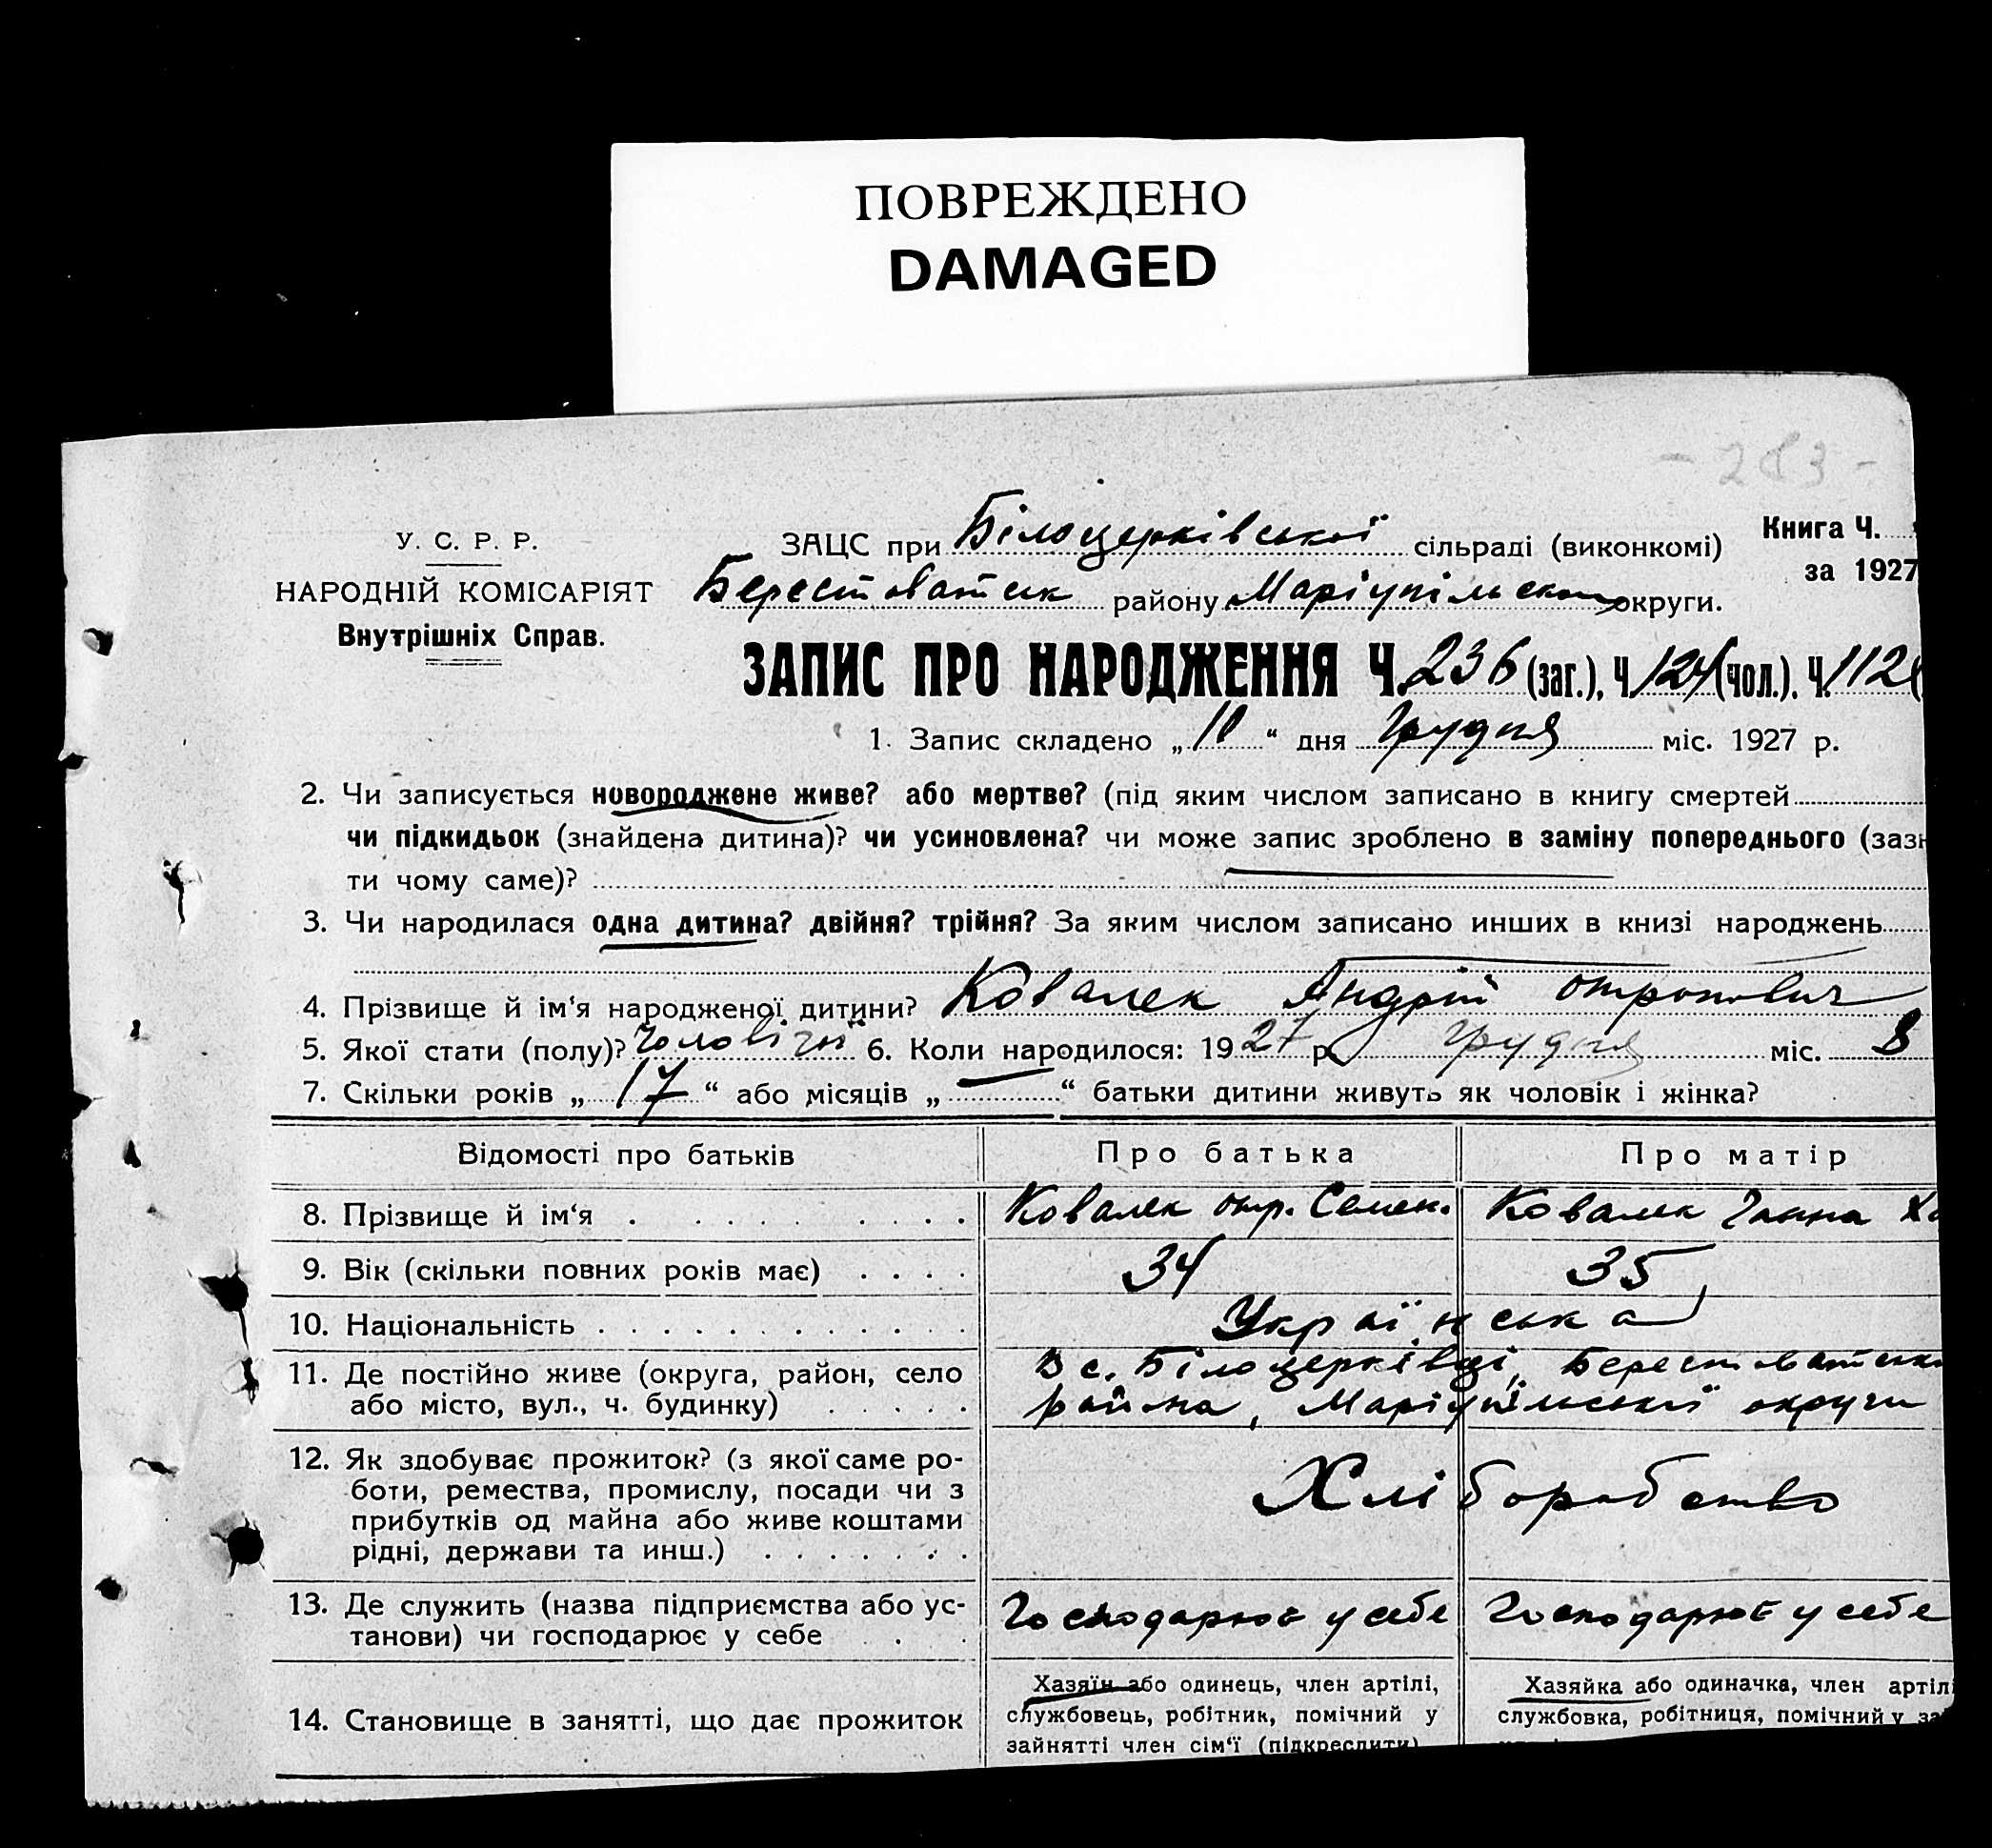 ПОВРЕЖДЕНО
DAMAGED
- 283 -
У. С. Р. Р.
НАРОДНІЙ КОМІСАРІЯТ
Внутрішніх Справ.
ЗАЦС при Білоцерківської сільраді (виконкомі)
Книга Ч.
за 1927
Берестоватськ району Маріупільської округи.
ЗАПИС ПРО НАРОДЖЕННЯ Ч. 236 (заг.), Ч. 124 (чол.). Ч. 112 (
1. Запис складено „ 10 “ дня Грудня міс. 1927 р.
2. Чи записується новороджене живе? або мертве? (під яким числом записано в книгу смертей
чи підкидьок (знайдена дитина)? чи усиновлена? чи може запис зроблено в заміну попереднього (зазн
ти чому саме)?
3. Чи народилася одна дитина? двійня? трійня? За яким числом записано инших в книзі народжень
4. Прізвище й ім‘я народженої дитини? Ковалек Андрій
5. Якої стати (полу)? Чоловічої 6. Коли народилося: 1927 р. Грудня міс. 8
7. Скільки років „ 17 “ або місяців „ — “ батьки дитини живуть як чоловік і жінка?
Відомості про батьків Про батька Про матір
8. Прізвище й ім‘я Ковалек отр. Семен. Ковалек Ганна
9. Вік (скільки повних років має) 34 35
10. Національність Українська
11. Де постійно живе (округа, район, село В с. Білоцерківці, Берестоватськ
або місто, вул., ч. будинку) района, Маріупільської округи
12. Як здобуває прожиток? (з якої саме ро-
боти, ремества, промислу, посади чи з
прибутків од майна або живе коштами
рідні, держави та инш.)
Хліборобство
13. Де служить (назва підприємства або ус-
танови) чи господарює у себе
Господарює у себе Господарює у себе
14. Становище в занятті, що дає прожиток
Хазяїн або одинець, член артілі,
службовець, робітник, помічний у
зайнятті член сім‘ї (підкреслити)
Хазяйка або одиначка, член артілі
службовка, робітниця, помічний у за